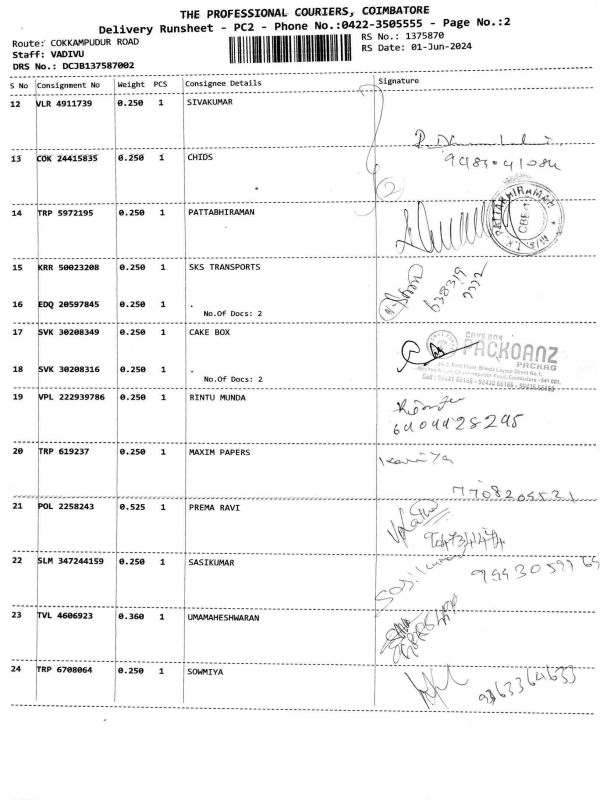 THE PROFESSIONAL COURIERS, COIMBATORE
Delivery Runsheet - PC2 - Phone No.:0422-3505555 - Page No.:2
Route: COKKAMPUDUR ROAD
RS No.: 1375870
Staff: VADIVU
RS Date: 01-Jun-2024
DRS No.: DCJB137587002
S No Consignment No Weight PCS Consignee Details Signature
12 VLR 4911739 0.250 1 SIVAKUMAR
13 COK 24415835 0.250 1 CHIDS
2
14 TRP 5972195 0.250 1 PATTABHIRAMAN
PATTABHIRAMAM
15 KRR 50023208 0.250 1 SKS TRANSPORTS
638319
7772
16 EDQ 20597845 0.250 1 .
No.Of Docs: 2
17 SVK 30208349 0.250 1 CAKE BOX
CAKE BOX
PACKOANZ
PACKAG
18 SVK 30208316 0.250 1 .
No.Of Docs: 2
19 VPL 222939786 0.250 1 RINTU MUNDA
20 TRP 619237 0.250 1 MAXIM PAPERS
21 POL 2258243 0.525 1 PREMA RAVI
22 SLM 347244159 0.250 1 SASIKUMAR
23 TVL 4606923 0.360 1 UMAMAHESHWARAN
24 TRP 6708064 0.250 1 SOWMIYA
9363364633